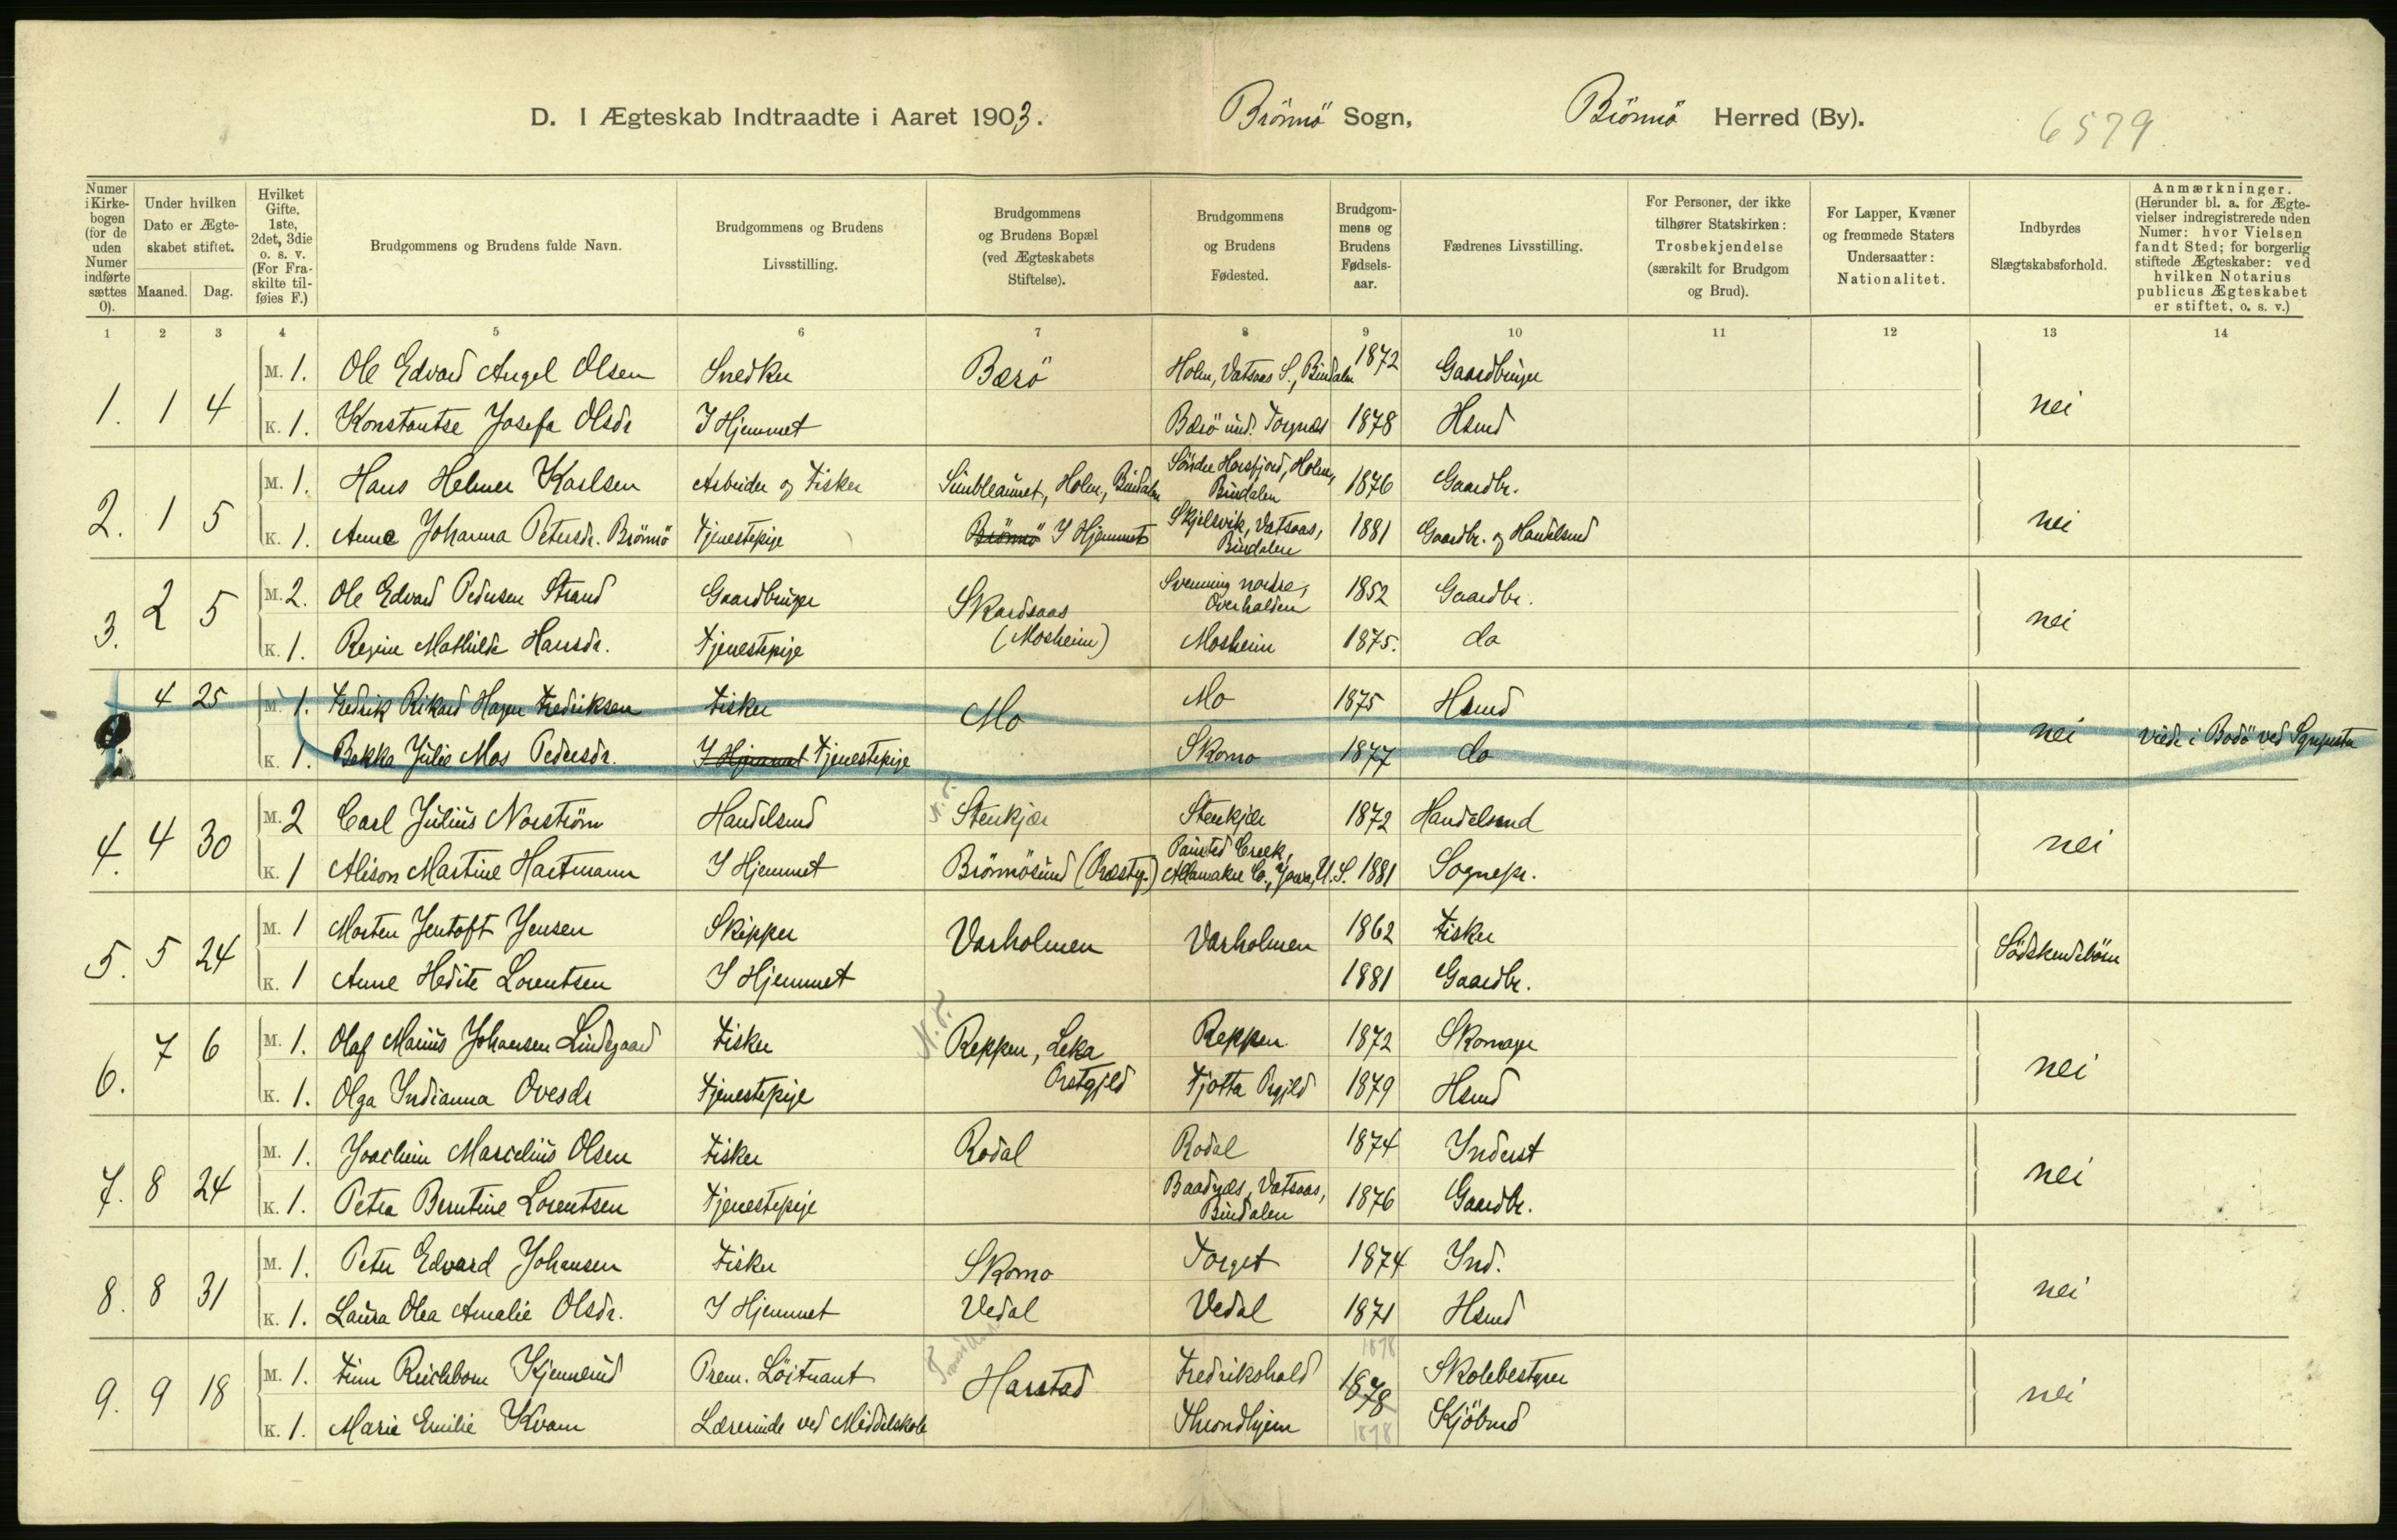 D. I Ægteskab Indtraadte i Aaret 1903. Brönnö Sogn, Brönnö Herred (By). 6579
Numer i Kirkebogen (for de uden Numer indførte sættes 0).
Under hvilken Dato er Ægteskabet stiftet.
Maaned. Dag.
Hvilket Gifte. 1ste, 2det, 3die o. s. v. (For Fraskilte tilføies F.)
Brudgommens og Brudens fulde Navn.
Brudgommens og Brudens Livsstilling.
Brudgommens og Brudens Bopæl (ved Ægteskabets Stiftelse).
Brudgommens og Brudens Fødested.
Brudgommens og Brudens Fødselsaar.
Fædrenes Livsstilling.
For Personer, der ikke tilhører Statskirken: Trosbekjendelse (særskilt for Brudgom og Brud).
For Lapper, Kvæner og fremmede Staters Undersaatter: Nationalitet.
Indbyrdes Slægtskabsforhold.
Anmærkninger. (Herunder bl. a. for Ægtevielser indregistrerede uden Numer: hvor Vielsen fandt Sted; for borgerlig stiftede Ægteskaber: ved hvilken Notarius publicus Ægteskabet er stiftet, o. s. v.)
1 2 3 4 5 6 7 8 9 10 11 12 13 14
1. 1 4 M. 1. Ole Edvard Angel Olsen Snedker Bærö Holm, Vatsaas S., Bindalen 1872 Gaardbruger nei
K. 1. Konstantse Josefa Olsdr I Hjemmet Bærö und. Torgnes 1878 Hsmd
2. 1 5 M. 1. Hans Helmer Karlsen Arbeider og Fisker Simbleaunet, Holm, Bindalen Söndre Horsfjord, Holm, Bindalen 1876 Gaardbr. nei
K. 1. Anna Johanna Petersdr. Brönnö Tjenestepige Brönnö I Hjemmet Skjelsvik, Vatsaas, Bindalen 1881 Gaardbr. og Handelsmd
3. 2 5 M. 2. Ole Edvard Pedersen Strand Gaardbruger Skardsaas (Mosheim) Svenning nordre, Overhalden 1852 Gaardbr. nei
K. 1. Regine Mathilde Hansdr. Tjenestepige Mosheim 1875. do
4 25 M. 1. Fredrik Rikard Hagen Fredriksen Fisker Mo Mo 1875 Hsmd nei viede i Bodö ved Sgnpræsten
K. 1. Bekka Julie Mos Pedersdr. I Hjemmet Tjenestepige Skomo 1877 do
4. 4 30 M. 2 Carl Julius Norström Handelsmd N.T. Stenkjær Stenkjær 1872 Handelsmd nei
K. 1 Alison Martine Hartmann I Hjemmet Brönnösund (Præstg.) Painted Creek, Allamakee Co., Jowa, U.S. 1881 Sognepr.
5. 5 24 M. 1 Morten Jentoft Jensen Skipper Varholmen Varholmen 1862 Fisker Södskendebörn
K. 1 Anne Hedite Lorentsen I Hjemmet 1881 Gaardbr.
6. 7 6 M. 1. Olaf Marius Johansen Lindgaard Fisker N.T. Reppen, Leka Prstgjld Reppen 1872 Skomager nei
K. 1. Olga Indianna Ovesdr Tjenestepige Tjotta Prgjld 1879 Hsmd
7. 8 24 M. 1. Joachim Marcelius Olsen Fisker Rodal Rodal 1874 Inderst nei
K. 1. Petra Berntine Lorentsen Tjenestepige Baadnæs, Vatsaas, Bindalen 1876 Gaardbr.
8. 8 31 M. 1. Peter Edvard Johansen Fisker Skomo Torget 1874 Ind. nei
K. 1. Laura Olea Amalie Olsdr. I Hjemmet Vedal Vedal 1871 Hsmd
9. 9 18 M. 1. Finn Reichborn Kjennerud Prem. Löitnant Harstad Fredrikshald 1878 1878 Skolebestyrer nei
K. 1. Marie Emilie Kvam Lærerinde ved Middelskole Throndhjem 1878 Kjöbmd